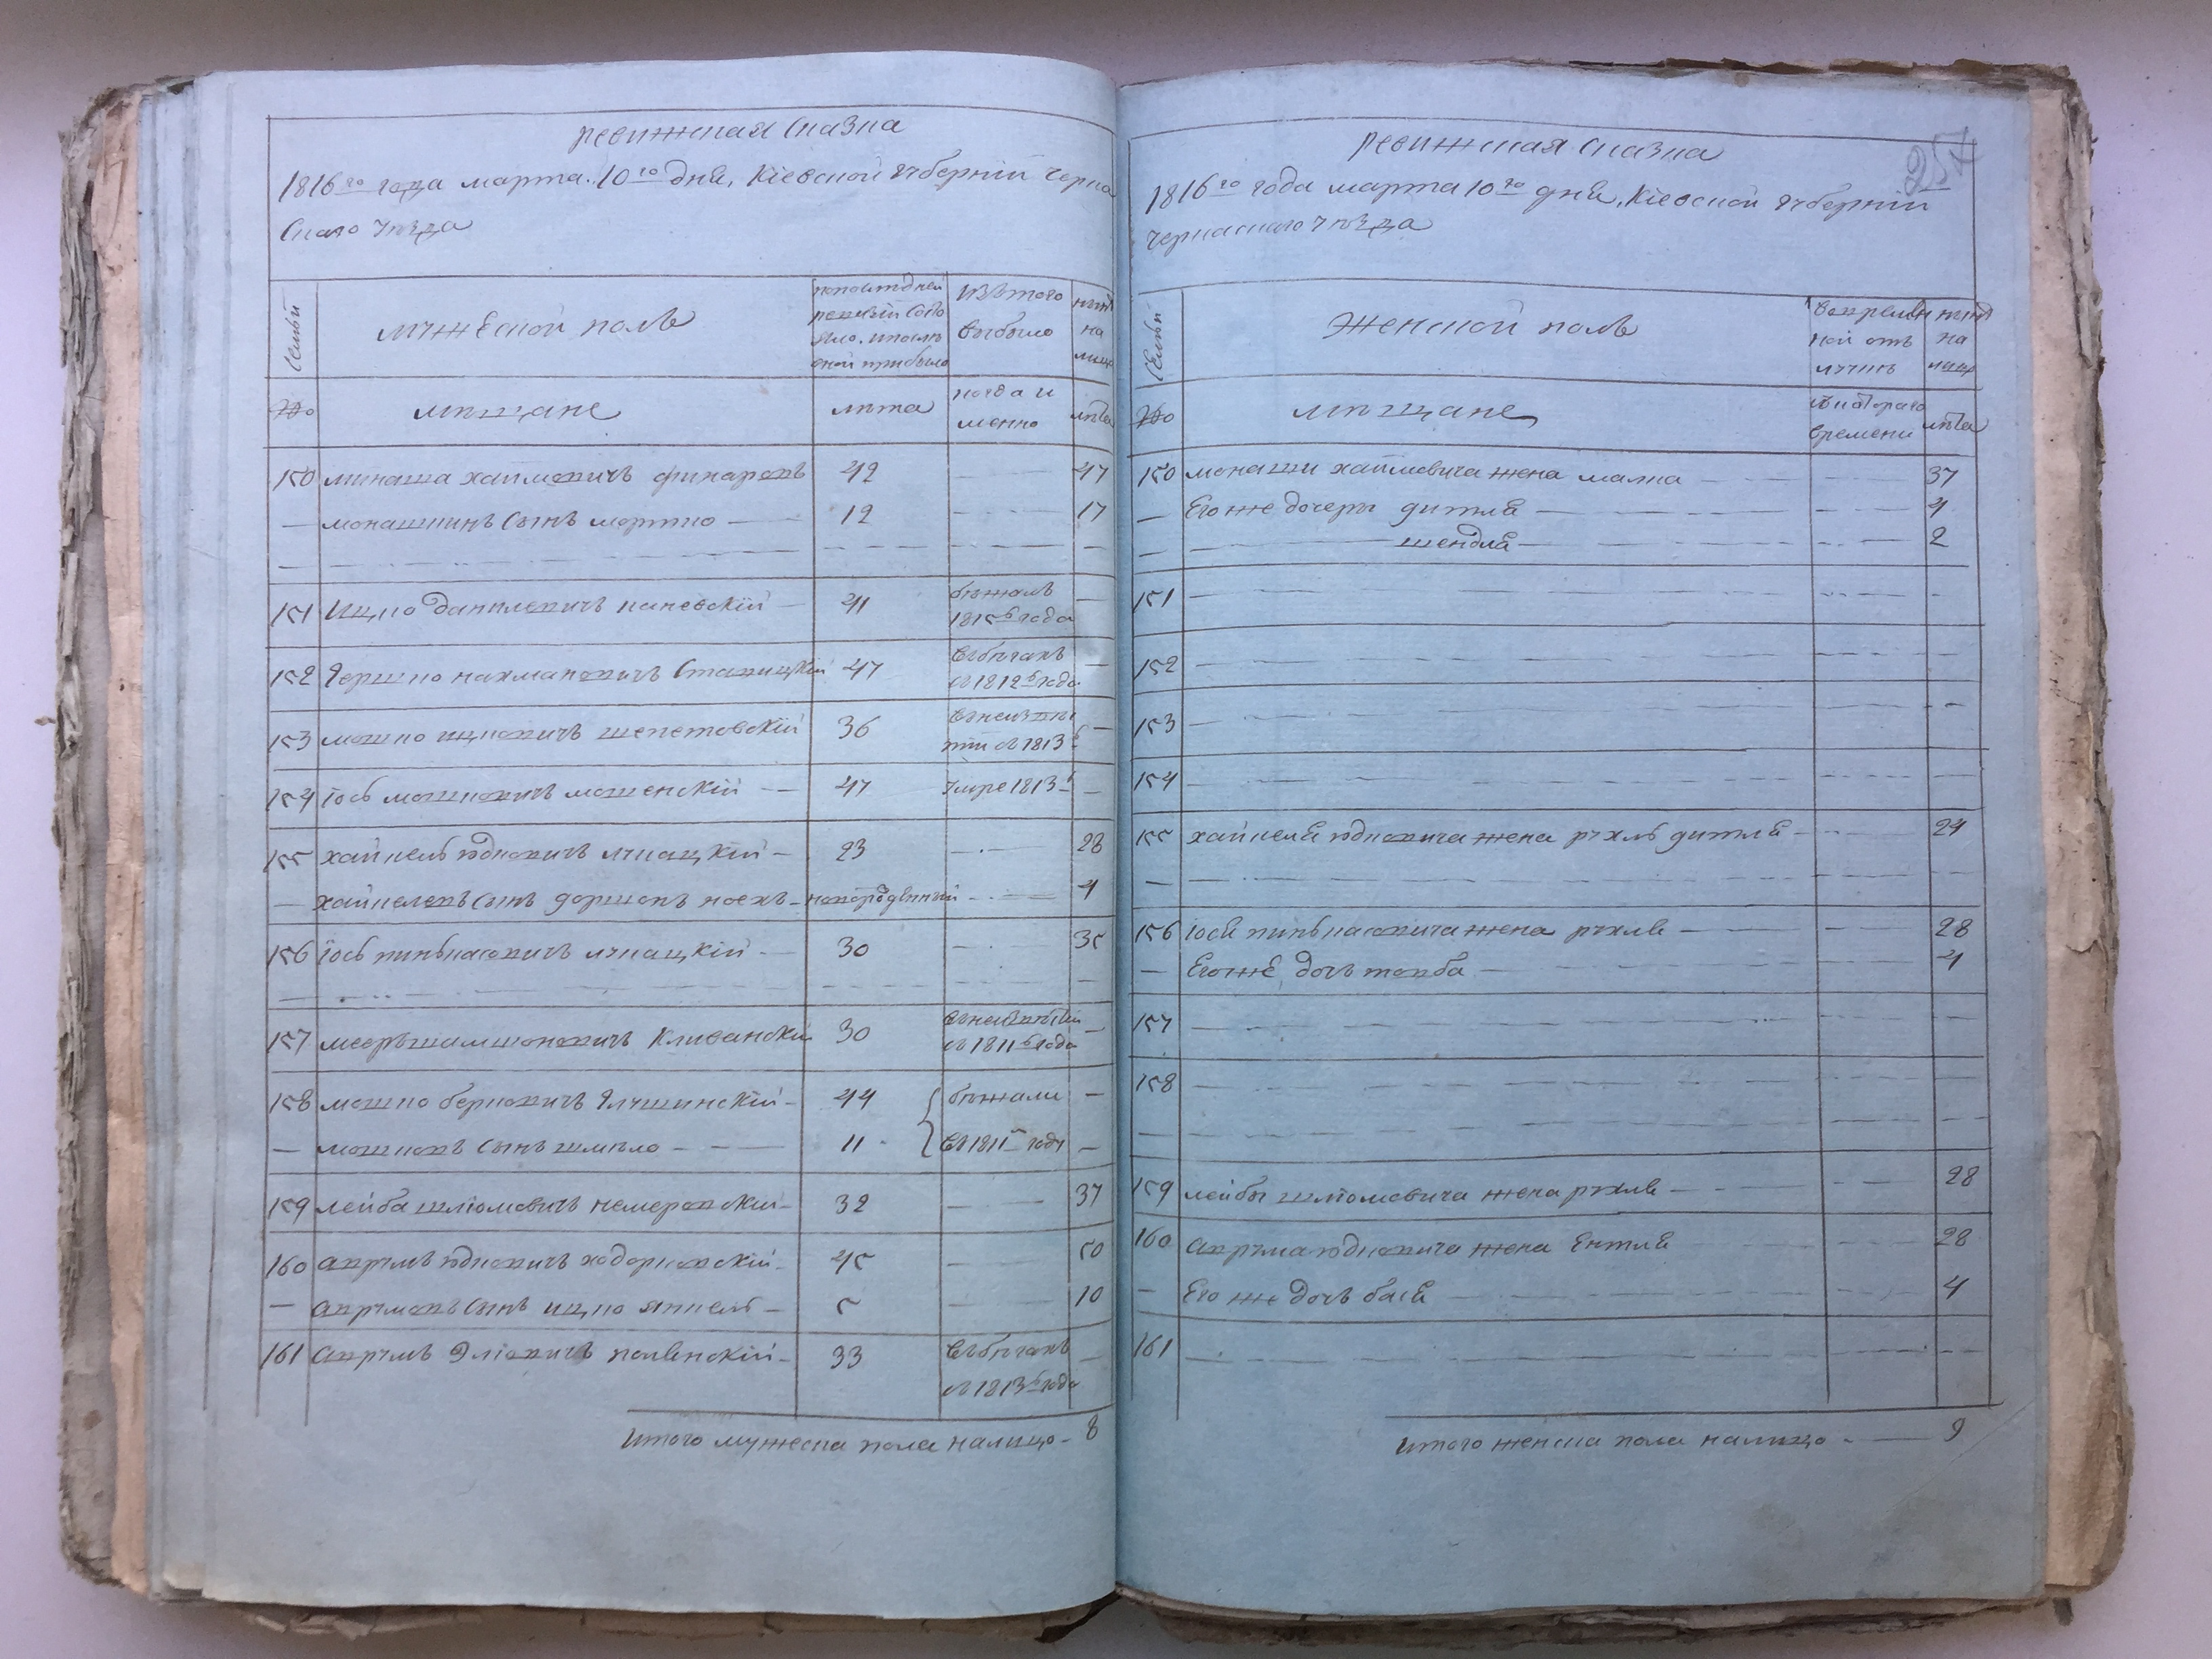 ревижская сказка
1816го года марта 10го дня, Кіевской губерніи черка
скаго уезда
семьи
мужеской полъ
попоследней
ревизіи состо
яло. и после
оной прибыло
изътого
выбыло
ныне
на
лицо
№о
мещане
лета
когда и
менно
лета
150 минаша хаимовичъ финаровъ 42 — 47
— монашинъ сынъ мортко — 12 — 17
151 Ицко даниловичъ каневскій — 41 бежалъ —
1815го года
152 Гершко нахмановичъ Ставицкій 47 въбегахъ —
съ1812го года
153 мошко ицковичъ шепетовскій 36 внеизвес —
тіи съ1813г
154 іось мошковичъ мошенскій — 47 умре1813г —
155 хайкель юдковичъ лукацкій — 23 — 28
— хайкелевъ сынъ доршонъ ноехъ — новорожденный — 4
156 іось пинькасовичъ лукацкій — 30 — 35
157 меоръ шамшоновичъ Клеванскій 30 внеизвестіи —
съ1811го года
158 мошко берковичъ Ялушинскій — 44 бежали —
— мошковъ сынъ шмило — 11 въ1811г году —
159 лейба шліомовичъ немеровскій — 32 — 37
160 аврумъ юдковичъ ходорковскій — 45 — 50
— аврумовъ сынъ ицко янкель — 5 — 10
161 аврумъ Эліовичъ 33 въбегахъ —
съ1813го года
итого мужеска пола налицо — 8
257
ревижская сказка
1816го года марта 10го дня, Кіевской губерніи
черкаскаго уезда
семьи
женской полъ
вовремян
ной отъ
лучке
ныне
на
лицо
№о
мещане
съкотораго
времени
лета
150 монаши хаймовича жена малка — 37
— Его же дочеры дитля — 4
— шендля — 2
151
152
153
154
155 хайкеля юдковича жена рухль дитля — 24
156 іося пинькасовича жена рухля — 28
— Его же дочь товба — 4
157
158
159 лейбы шліомовича жена рухля — 28
160 аврума юдковича жена Ентля 28
— Его же дочь бася 4
161
итого женска пола налицо — 9